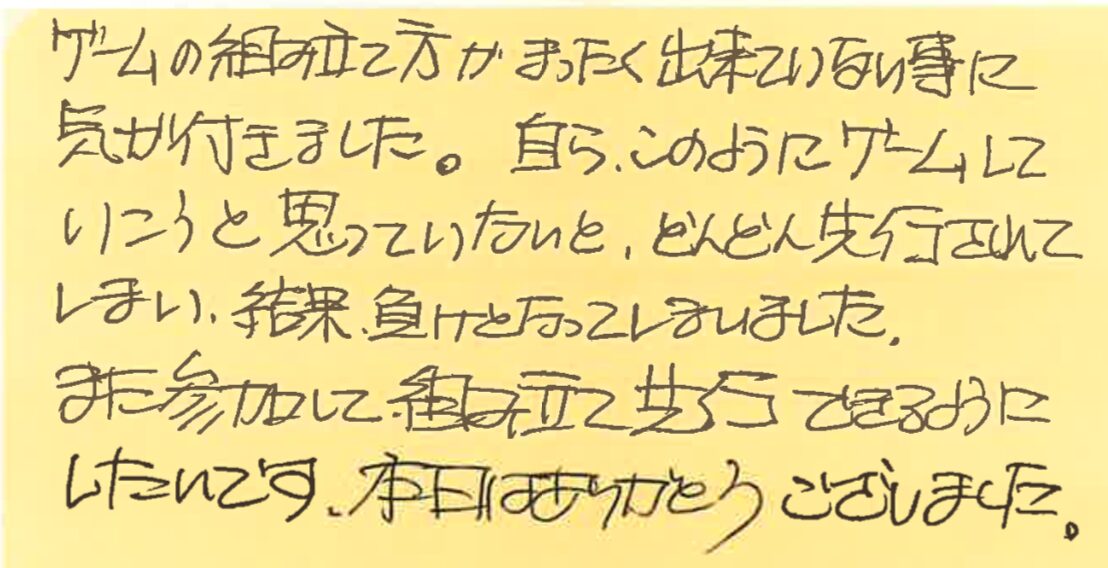 ゲームの組み立て方がまったく出来ていない事に
気が付きました。自ら、このようにゲームして
いこうと思っていないと、どんどん先行されて
しまい、結果、負けとなってしまいました。
また参加して、組み立て先行できるように
したいです、本日はありがとうございました。